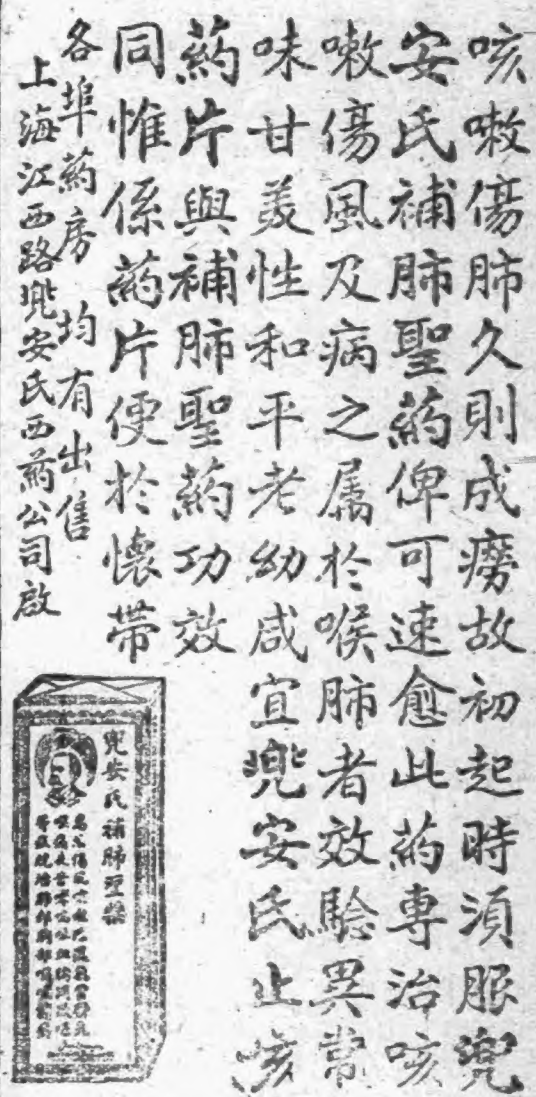 咳嗽傷肺久則成癆故初起時須服兜
安氏補肺聖葯俾可速愈此葯專治咳
嗽傷風及病之屬於喉肺者效驗異常
味甘美性和平老幼咸宜兜安氏止咳
葯片與補肺聖葯功效
同惟係葯片便於懷帶
各埠葯房均有出售
上海江西路兜安氏西葯公司啟
兜安氏補肺聖藥